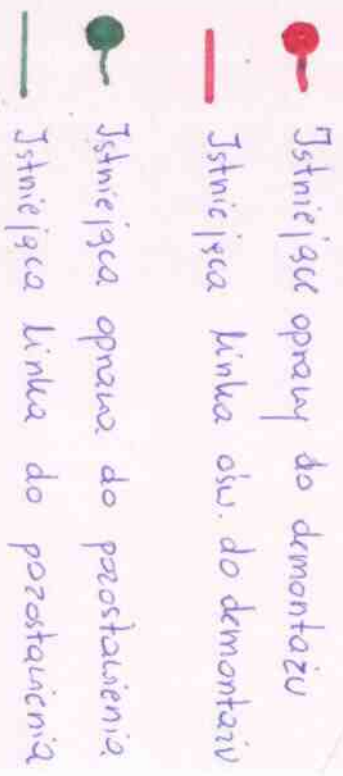 Istniejące oprawy do demontażu
Istniejąca linka ośw. do demontażu
Istniejąca oprawa do pozostawienia
Istniejąca linka do pozostawienia